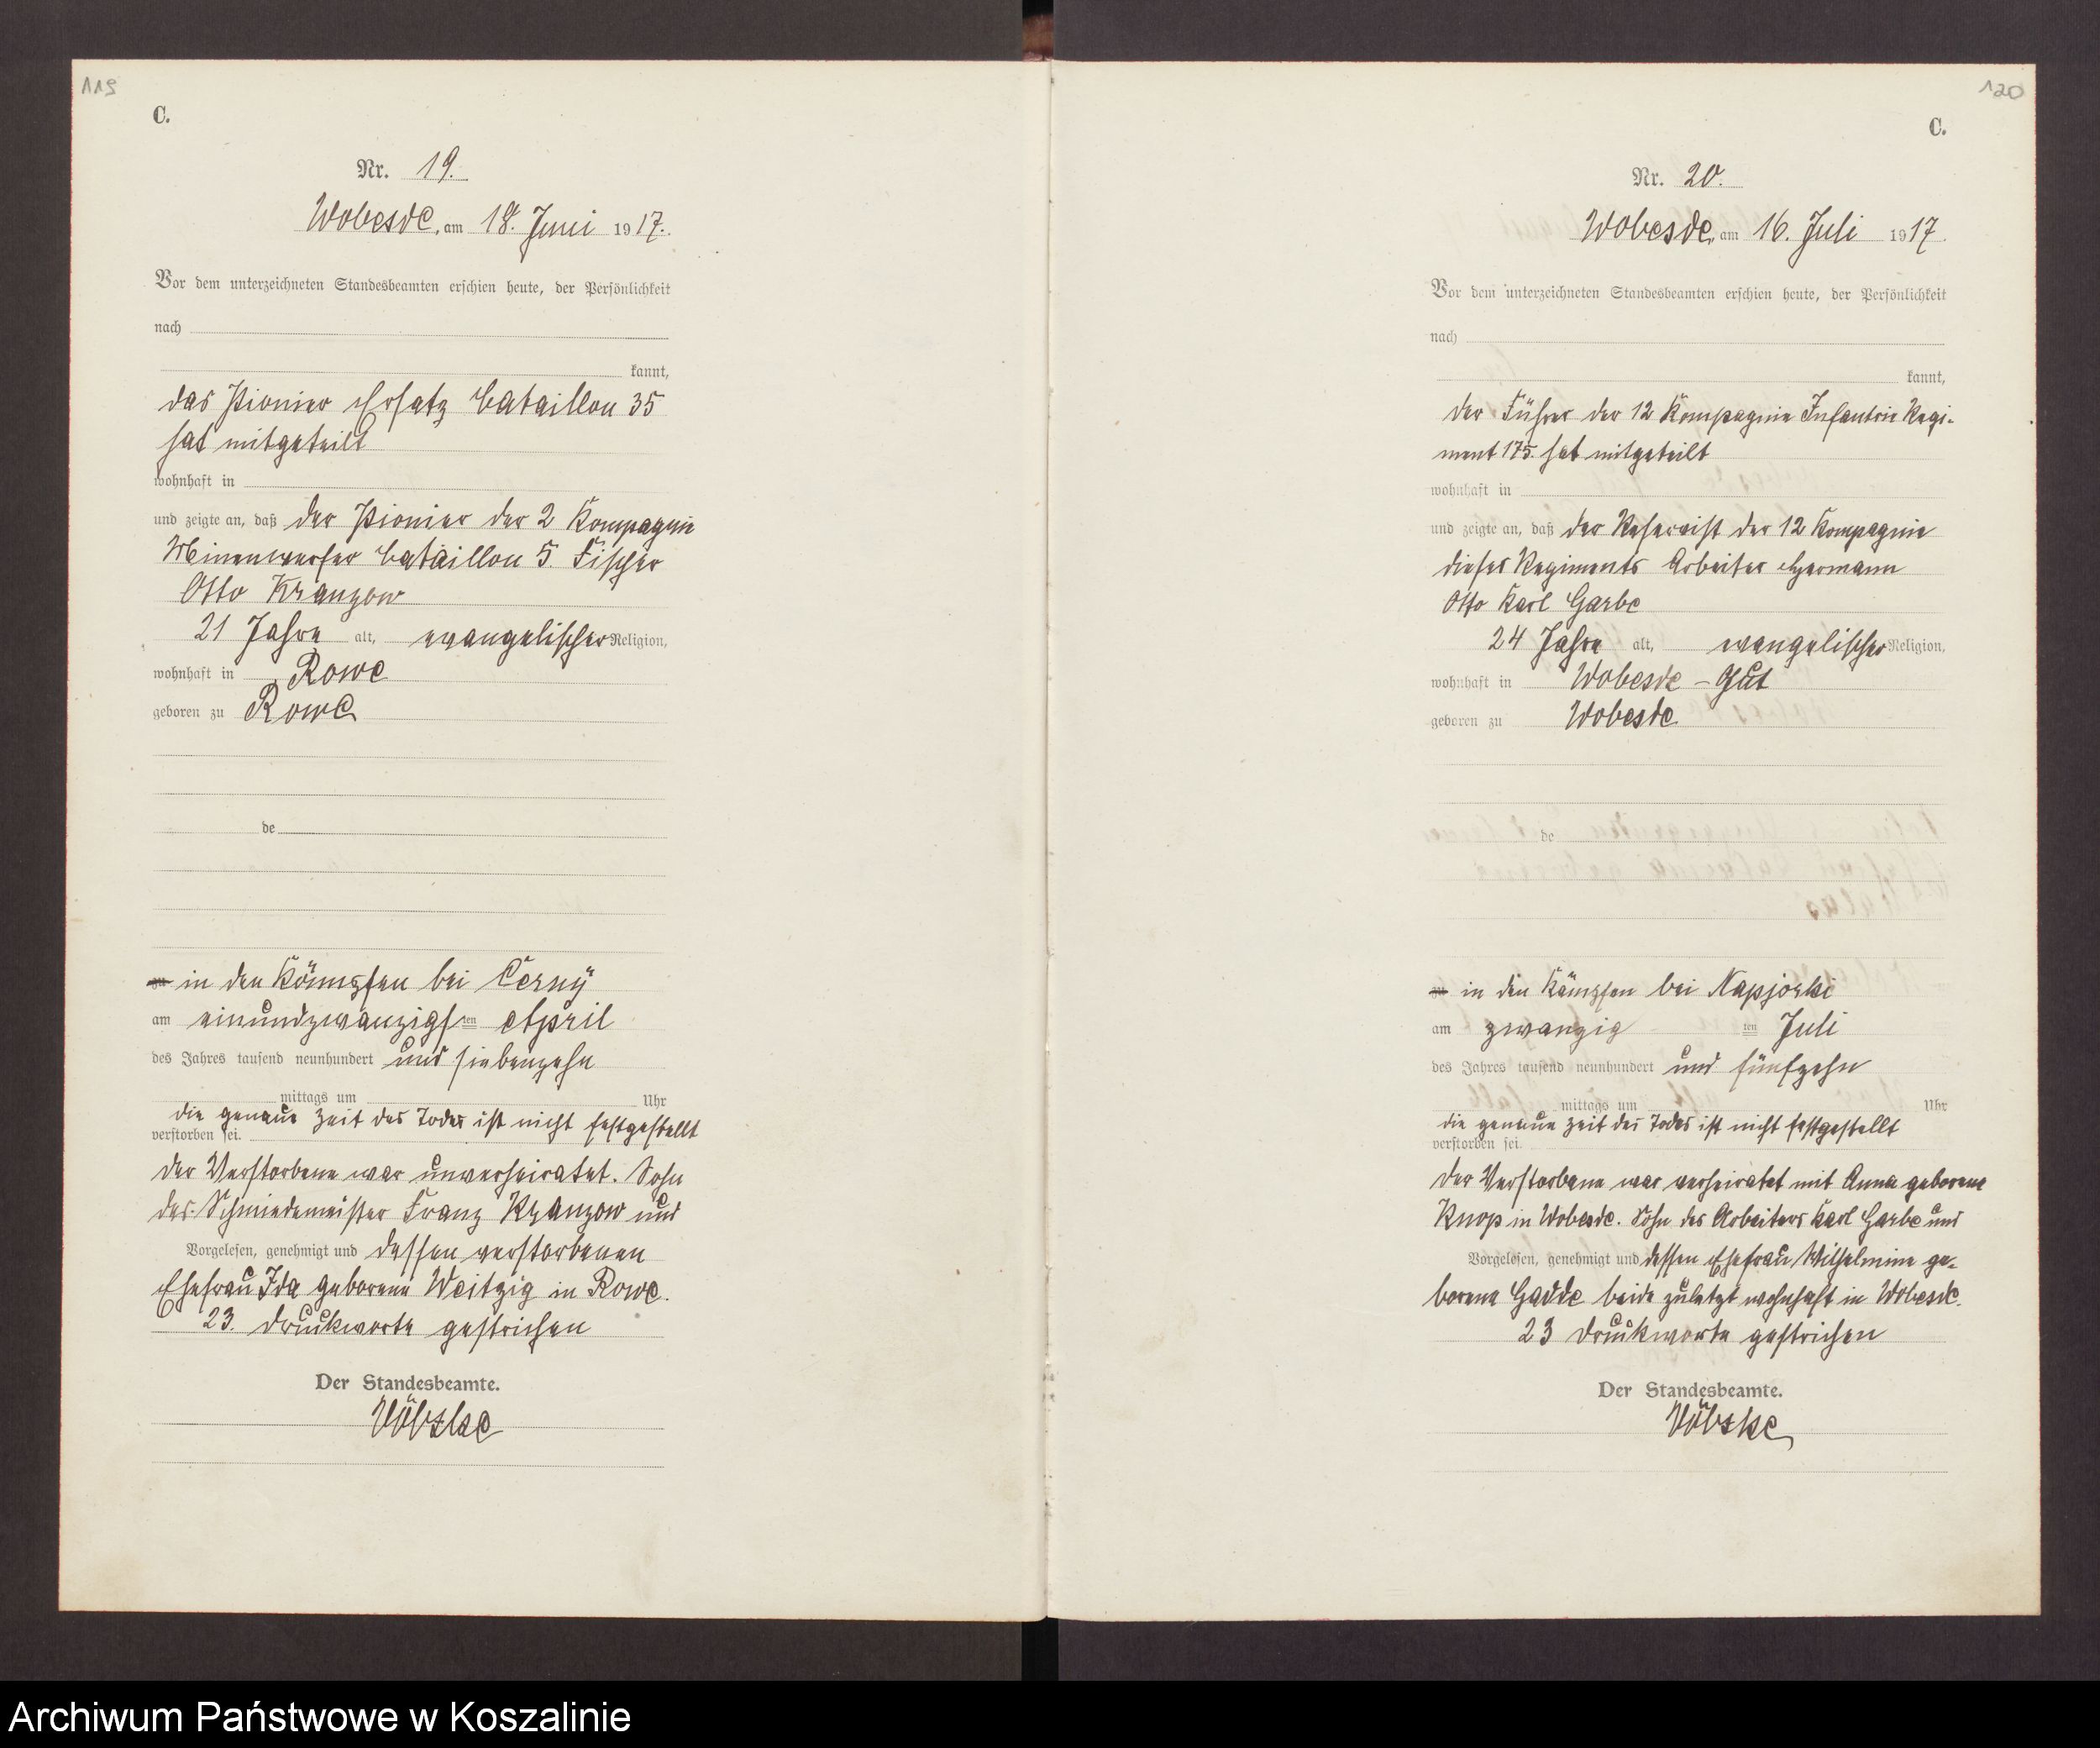 119
C.
Nr. 19.
Wobesde, am 18. Juni 1917.
Vor dem unterzeichneten Standesbeamten erschien heute, der Persönlichkeit
nach
kannt,
das Pionier Ersatz Bataillon 35
hat mitgeteilt
wohnhaft in
und zeigte an, daß der Pionier der 2 Kompagnie
Minenwerfer Bataillon 5. Fischer
Otto Kranzow
21 Jahre alt, evangelischer Religion,
wohnhaft in Rowe
geboren zu Rowe
de
zu in den Kämpfen bei Cerny
am einundzwanzigsten April
des Jahres tausend neunhundert und siebenzehn
mittags um Uhr
die genaue Zeit des Todes ist nicht festgestellt
verstorben sei.
Der Verstorbene war unverheiratet. Sohn
des Schmiedemeister Franz Kranzow und
Vorgelesen, genehmigt und dessen verstorbenen
Ehefrau Ida geborene Weitzig in Rowe.
23. Druckworte gestrichen
Der Standesbeamte.
120
C.
Nr. 20.
Wobesde, am 16. Juli 1917.
Vor dem unterzeichneten Standesbeamten erschien heute, der Persönlichkeit
nach
kannt,
der Führer der 12 Kompagnie Infantrie Regi-
ment 175. hat mitgeteilt
wohnhaft in
und zeigte an, daß der Reservist der 12 Kompagnie
dieses Regiments Arbeiter Hermann
Otto Karl Garbe
24 Jahre alt, evangelischer Religion,
wohnhaft in Wobesde - Gut
geboren zu Wobesde
de
zu in den Kämpfen bei Napjorki
am zwanzig ten Juli
des Jahres tausend neunhundert und fünfzehn
mittags um Uhr
die genaue Zeit des Todes ist nicht festgestellt
verstorben sei.
Der Verstorbene war verheiratet mit Anna geborene
Knop in Wobesde. Sohn des Arbeiters Karl Garbe und
Vorgelesen, genehmigt und dessen Ehefrau Wilhelmine ge-
borene Gadde beide zuletzt wohnhaft in Wobesde.
23 Druckworte gestrichen
Der Standesbeamte.
Archiwum Państwowe w Koszalinie